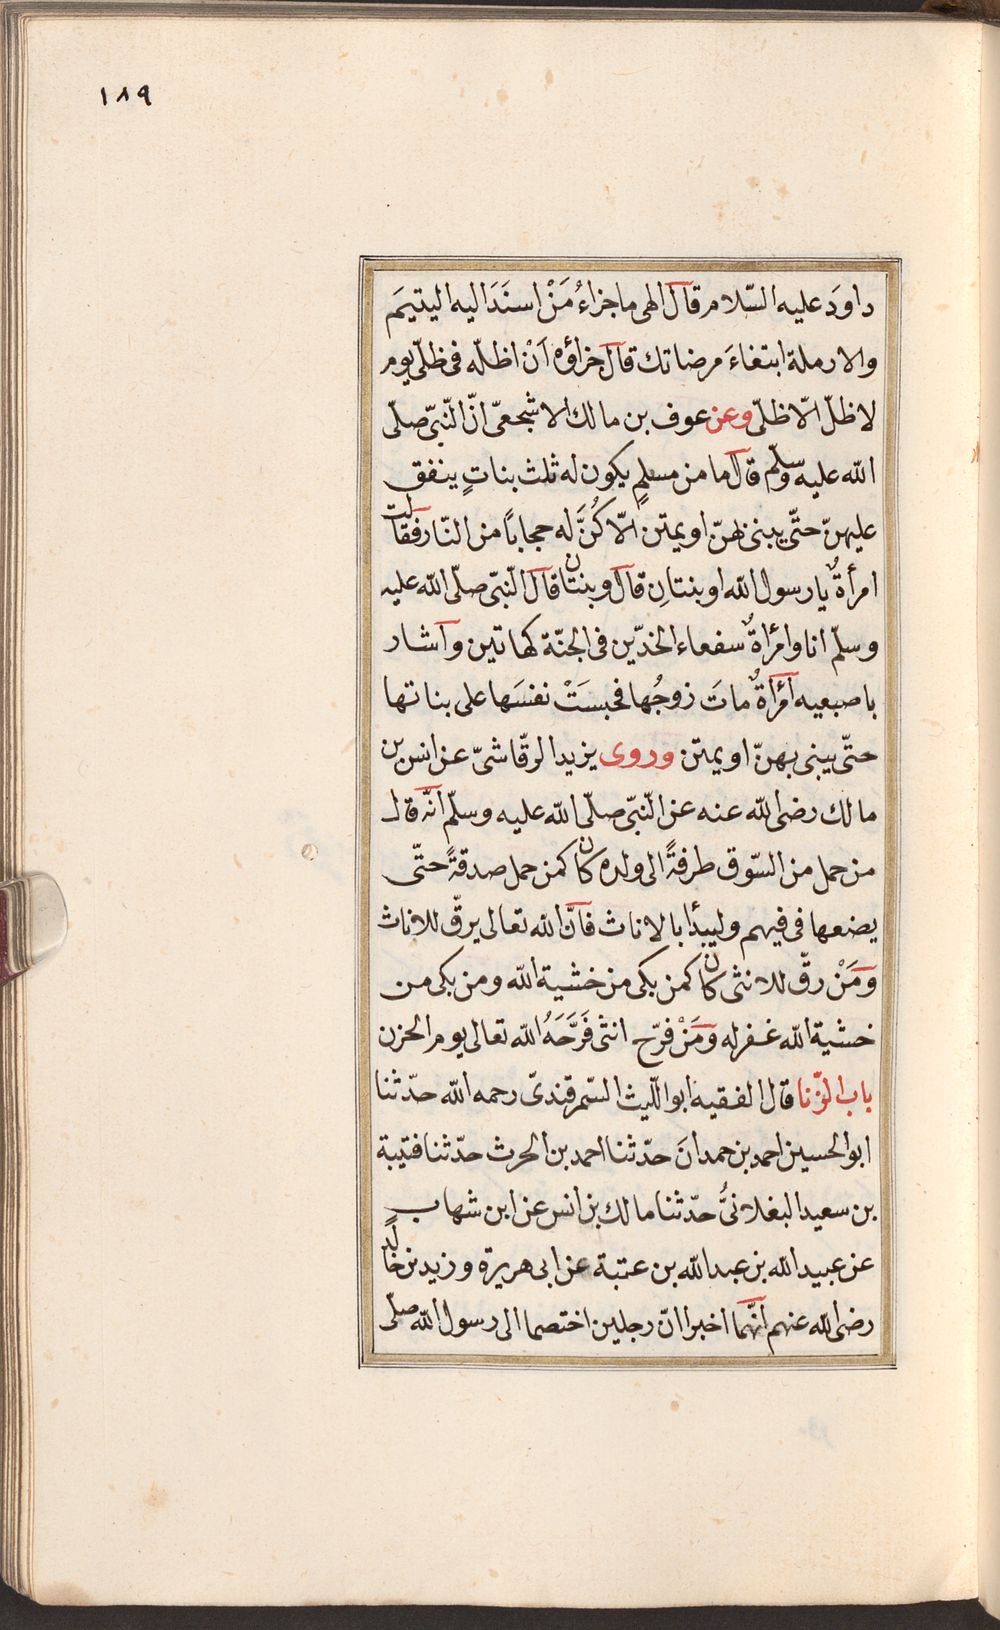 ١٨٩
داودَ عليه السّلام قال الهى ما جزاءُ مَنْ اسنَدَ اليه اليتيمَ
والارملة ابتغاءَ مرضاتك قال جزاؤه اَنْ اظلّه فى ظلّى يوم
لا ظلّ الّا ظلّى وعن عوف بن مالك الاشجعىّ انّ النّبىّ صلّى
الله عليه وسلّم قال ما من مسلمٍ يكون له ثلث بناتٍ ينفق
عليهنّ حتّى يبنى ظهنّ او يمتن الّا كُنَّ له حجابًا من النّار فقالت
امرأةٌ يا رسول الله او بنتانِ قال وبنتان قال النّبىّ صلّى الله عليه
وسلّم انا وامرأةٌ سفعاء الخدّين فى الجنّة كهاتين وأشار
باصبعيه امرأةٌ ماتَ زوجُها فحبسَتْ نفسَها على بناتها
حتّى يبنى بهنّ او يمتن وروى يزيد الرقّاشىّ عن انس بن
مالك رضى الله عنه عن النّبىّ صلّى الله عليه وسلّم انّه قال
من حمل من السّوق طرفةً الى ولده كان كمن حمل صدقةً حتّى
يضعها فى فيهم وليبدأ بالاناث فانّ الله تعالى يرقّ للاناث
ومَنْ رقّ للانثى كان كمن بكى من خشية الله ومن بكى من
خشية الله غفر له ومَنْ فرّح انثى فَرَّحَهُ الله تعالى يوم الحزن
باب الزّنا قال الفقيه ابو اللّيث السّمرقندىّ رحمه الله حدّثنا
ابو الحسين احمد بن حمدانَ حدّثنا احمد بن الحرث حدّثنا قتيبة
بن سعيد البغلانىُّ حدّثنا مالك بن انس عن ابن شهاب
عن عبيد الله بن عبد الله بن عتبة عن ابى هريرة وزيد بن خالد
رضى الله عنهم انّهما اخبرا انّ رجلين اختصما الى رسول الله صلّى